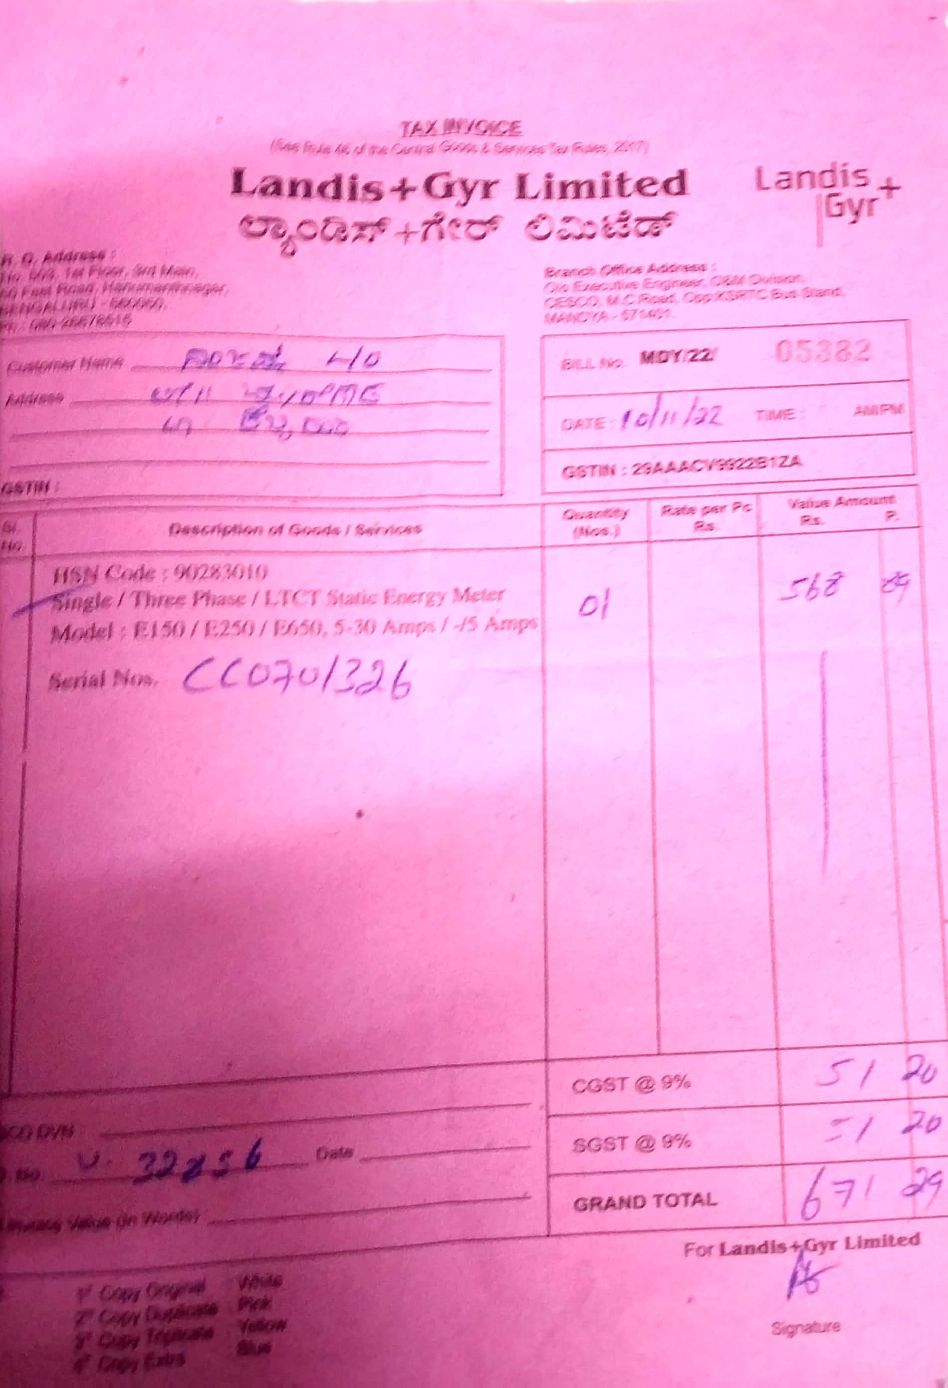 TAX INVOICE
(See Rule 46 of the Central Goods & Services Tax Rules, 2017)
Landis+Gyr Limited
ಲ್ಯಾಂಡಿಸ್ +ಗೇರ್ ಲಿಮಿಟೆಡ್
Landis
Gyr+
R. O. Address :
1st Floor, 3rd Main,
Feet Road, Hanumanthnagar,
BENGALURU - 560050.
Ph : 080-26678615
Branch Office Address :
O/o Executive Engineer, O&M Division,
CESCO, M.C. Road, Opp KSRTC Bus Stand,
MANDYA - 571401.
Customer Name
Address
GSTIN :
BILL No. MDY/22/ 05382
DATE : 10/11/22 TIME : AM/PM
GSTIN : 29AAACV9922B1ZA
Sl. No. Description of Goods / Services Quantity (Nos.) Rate per Pc Rs. Value Amount Rs. P.
HSN Code : 90283010
Single / Three Phase / LTCT Static Energy Meter 01 568 89
Model : E150 / E250 / E650, 5-30 Amps / -/5 Amps
Serial Nos. CC0701326
CGST @ 9% 51 20
SGST @ 9% 51 20
GRAND TOTAL 671 29
DVN
No. Date
Value (in Words)
For Landis+Gyr Limited
Signature
1st Copy Original White
2nd Copy Duplicate Pink
3rd Copy Triplicate Yellow
4th Copy Extra Blue